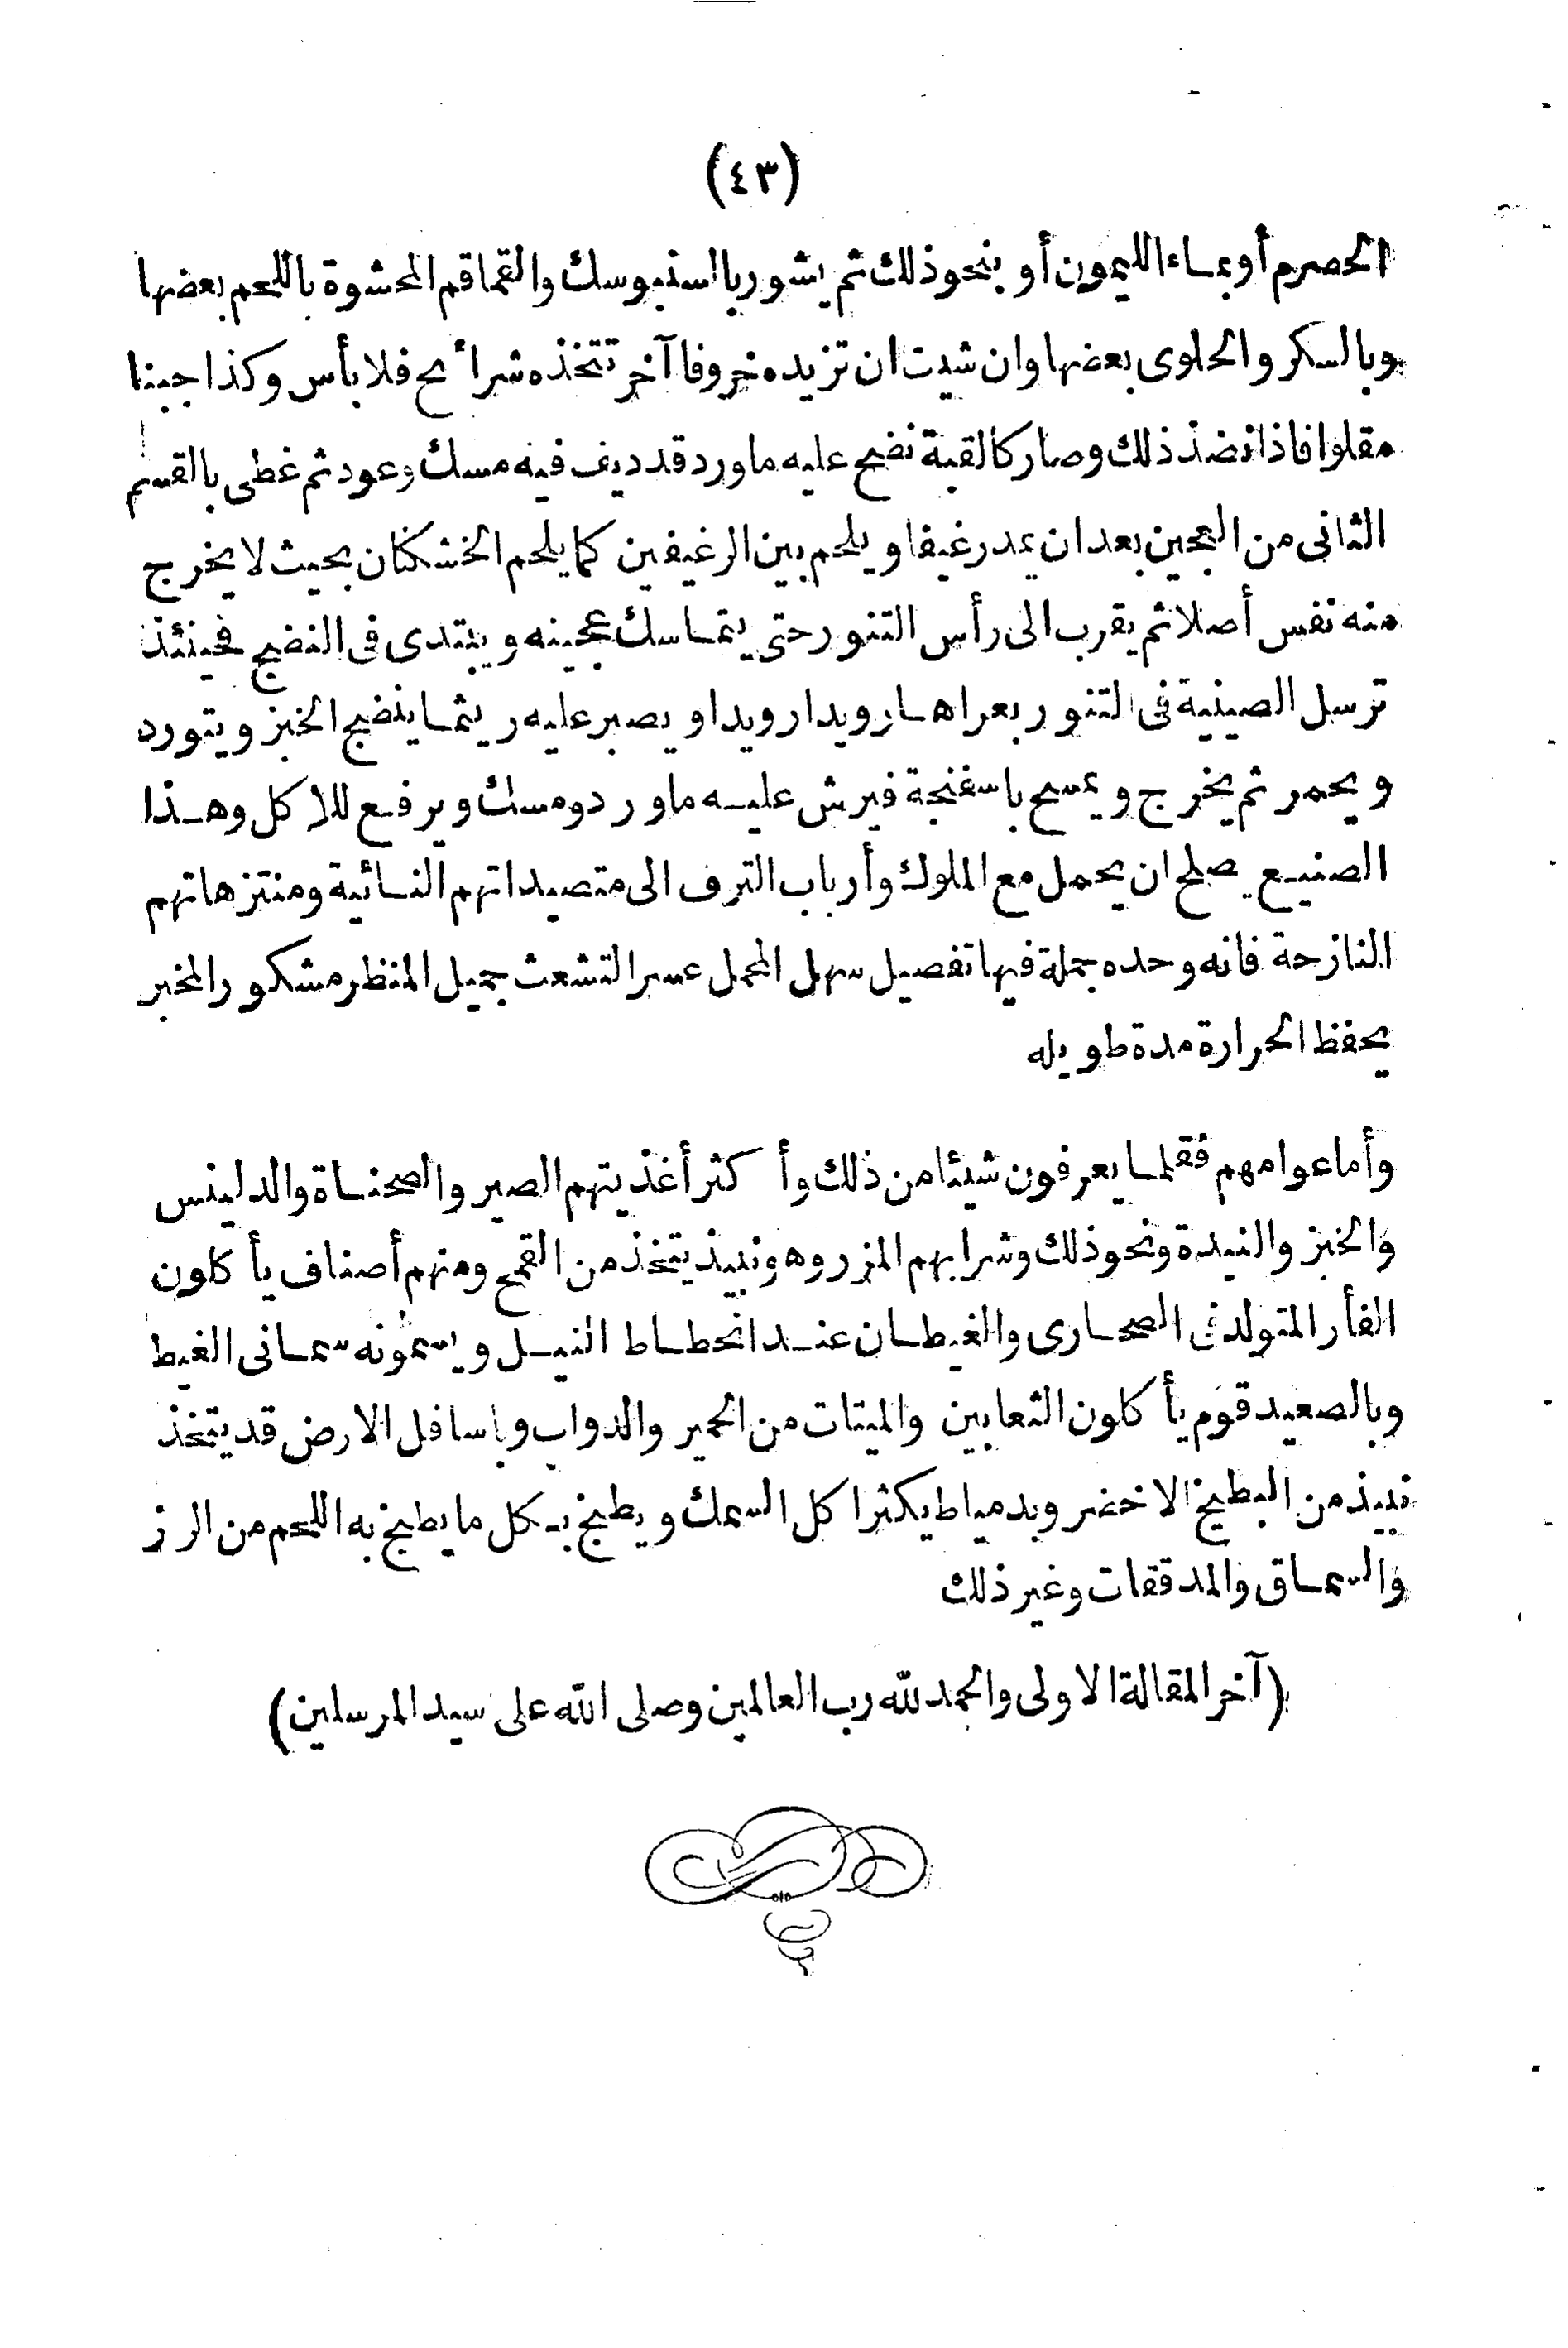 (٤٣)
الحصرم أو بماء الليمون أو بنحو ذلك ثم يشور بالسنبوسك والقماقم المحشوة باللحم بعضها
وبالسكر والحلوى بعضها وان شيت ان تزيده خروفا آخر تتخذه شرائح فلا بأس وكذا جبنا
مقلوا فاذا نضد ذلك وصار كالقبة نضح عليه ماورد قد ديف فيه مسك وعود ثم غطى بالقسم
الثانى من العجين بعد ان يمد رغيفا ويلحم بين الرغيفين كما يلحم الخشكنان بحيث لا يخرج
منه نفس أصلا ثم يقرب الى رأس التنور حتى يتماسك عجينه ويبتدى فى النضج فحينئذ
ترسل الصينية فى التنور بعراها رويدا رويدا ويصبر عليه ريثما ينضج الخبز ويتورد
ويحمر ثم يخرج ويمسح باسفنجة فيرش عليه ماورد ومسك ويرفع للاكل وهذا
الصنيع يصلح ان يحمل مع الملوك وأرباب الترف الى متصيداتهم النائية ومنتزهاتهم
النازحة فانه وحده جملة فيها تفصيل سهل المحمل عسر التشعث جميل المنظر مشكور المخبر
يحفظ الحرارة مدة طويله
وأما عوامهم فقلما يعرفون شيئا من ذلك وأكثر أغذيتهم الصير والصحناة والدلينس
والخبز والنيدة ونحو ذلك وشرابهم المزر وهو نبيذ يتخذ من القمح ومنهم أصناف يأكلون
الفأر المتولد فى الصحارى والغيطان عند انحطاط النيل ويسمونه سمانى الغيط
وبالصعيد قوم يأكلون الثعابين والميتات من الحمير والدواب وباسافل الارض قد يتخذ
نبيذ من البطيخ الاخضر وبدمياط يكثر اكل السمك ويطبخ بكل ما يطبخ به اللحم من الرز
والسماق والمدققات وغير ذلك
(آخر المقالة الاولى والحمد لله رب العالمين وصلى الله على سيد المرسلين)